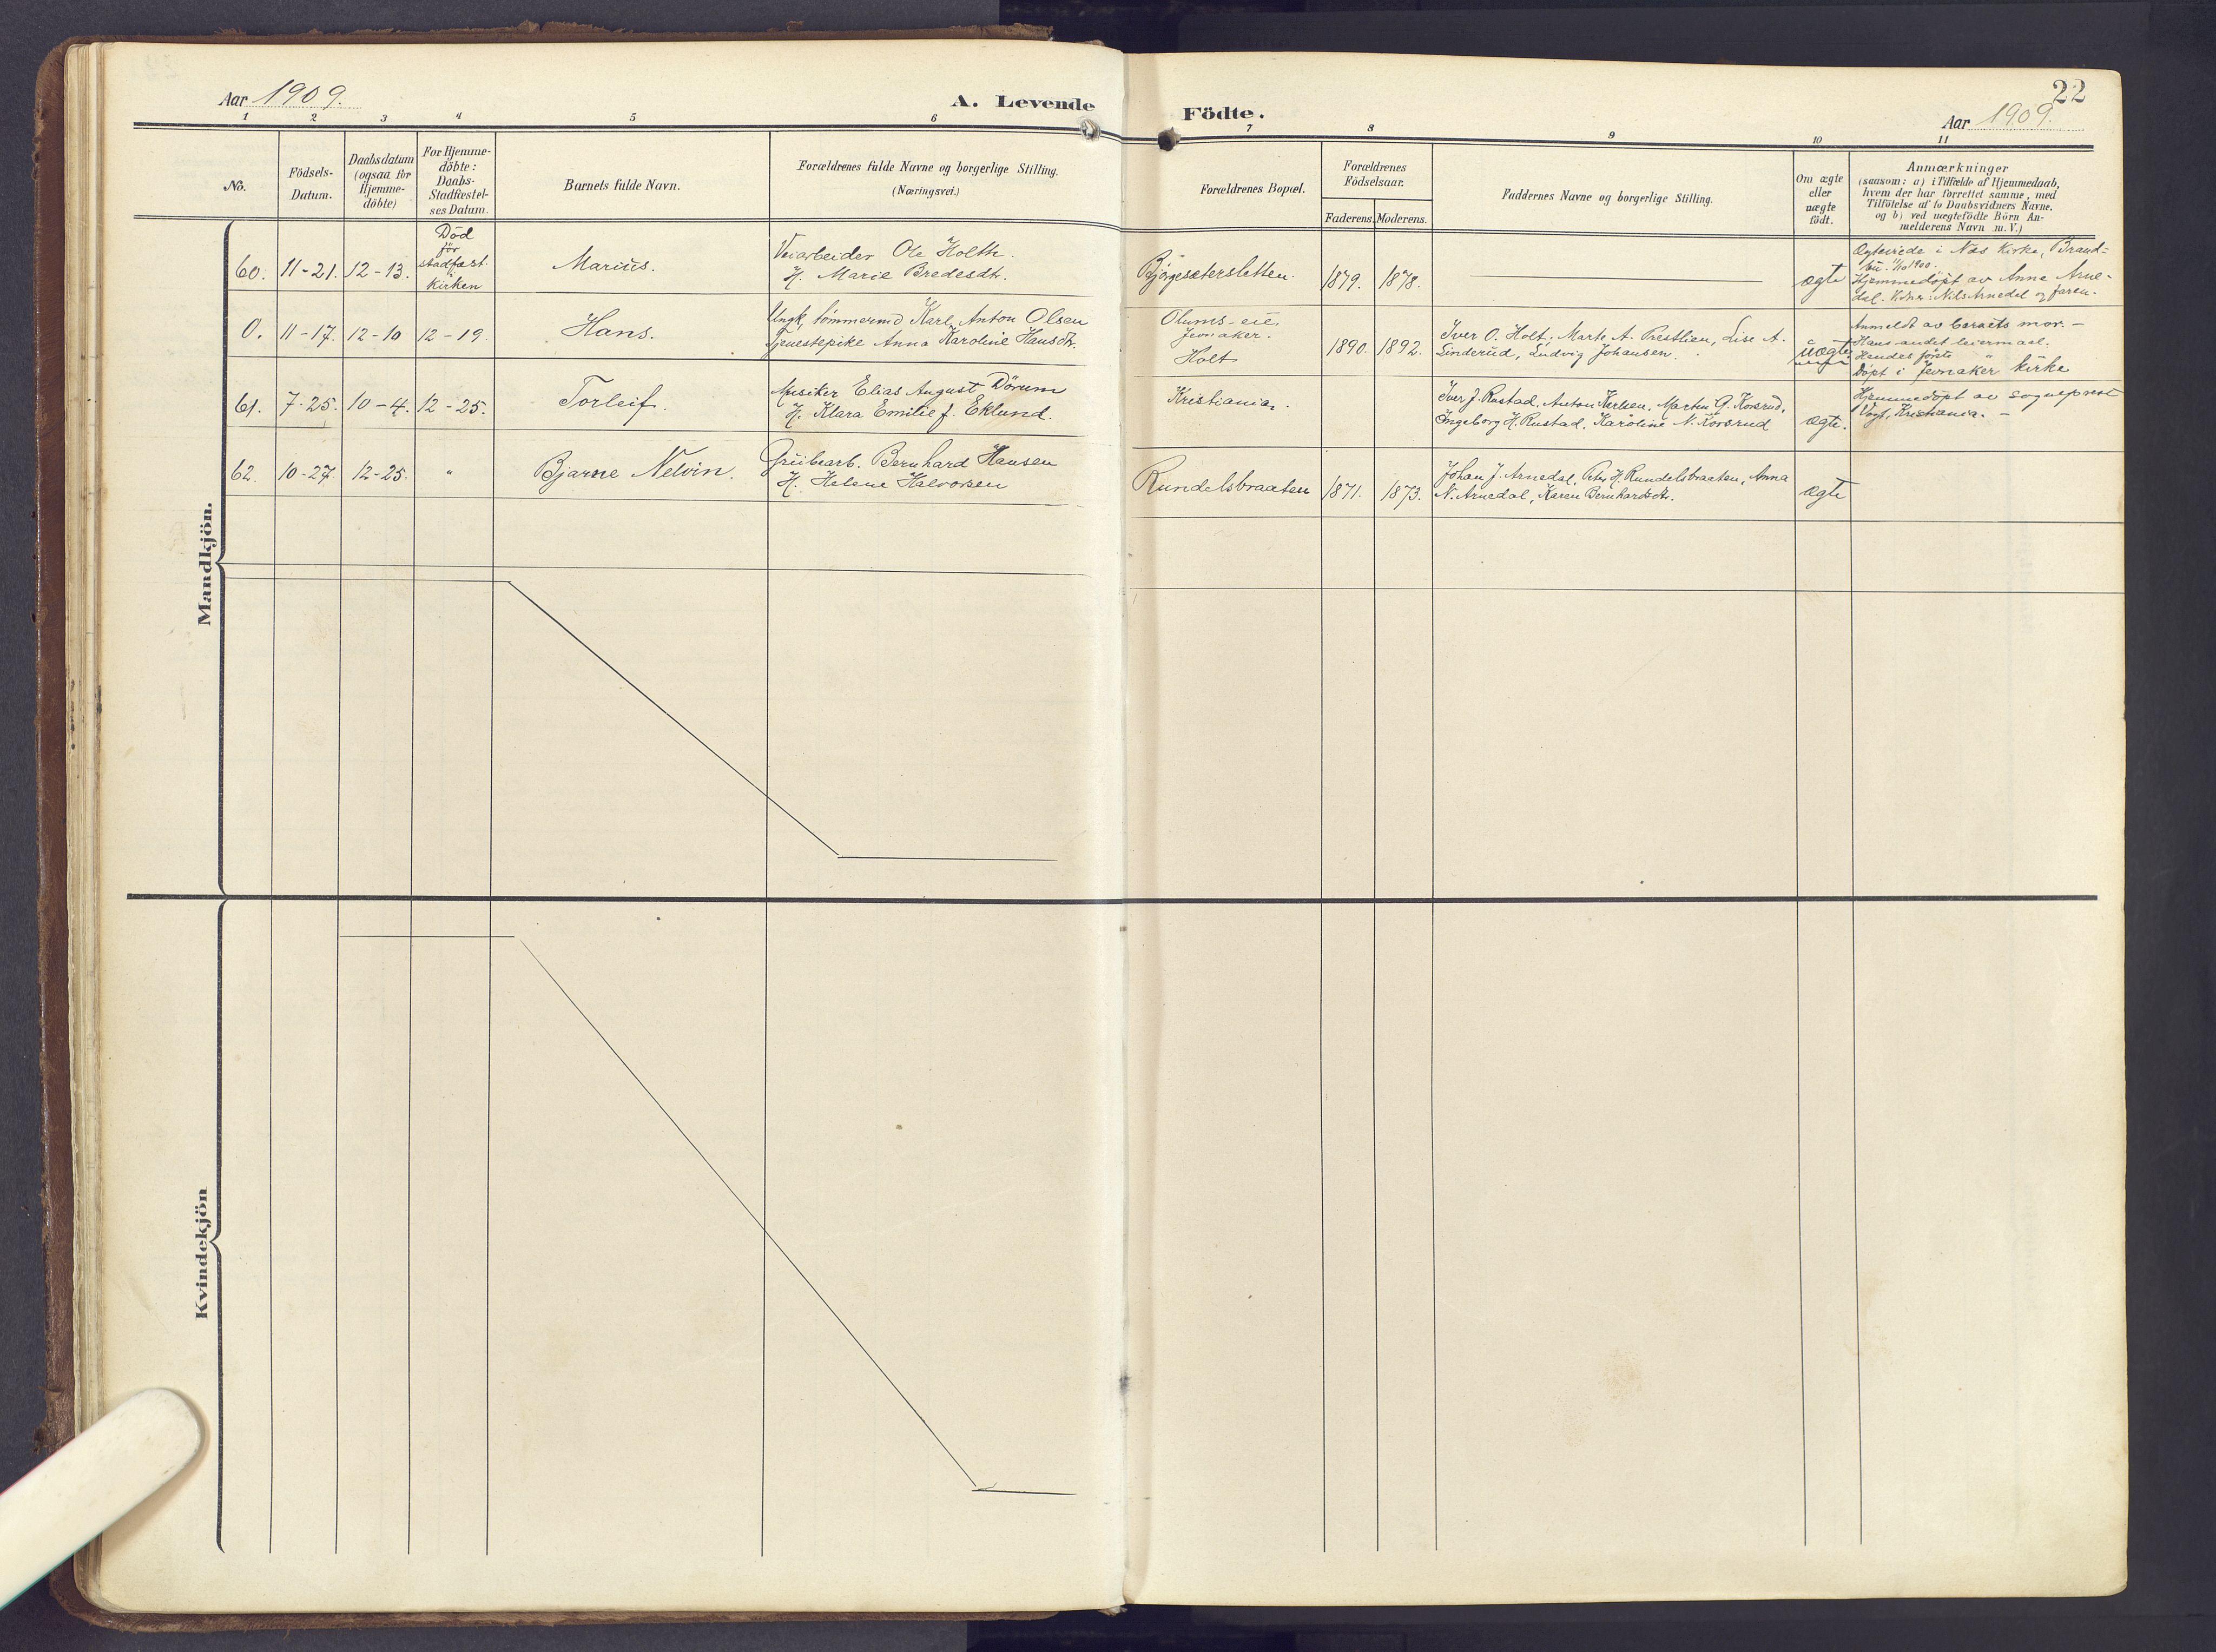 Aar 1909.
A. Levende
Födte.
22
Aar 1909.
1 2 3 4 5 6 7 8 9 10 11
No.
Födsels-
Datum.
Daabsdatum
(ogsaa for
Hjemme-
döbte)
For Hjemme-
döbte:
Daabs-
Stadfæstel-
ses Datum.
Barnets fulde Navn.
Forældrenes fulde Navne og borgerlige Stilling.
(Næringsvei.)
Forældrenes Bopæl.
Forældrenes
Födselsaar.
Faderens. Moderens.
Faddernes Navne og borgerlige Stilling.
Om ægte
eller
uægte
födt.
Anmærkninger
(saasom: a) i Tilfælde af Hjemmedaab,
hvem der har forrettet samme, med
Tilföielse af to Daabsvidners Navne.
og b) ved uægtefödte Börn An-
melderens Navn m. V.)
Mandkjön.
60. 11-21. 12-13.
Död
för
stadfæst.
i
kirken
Marius.
Veiarbeider Ole Holth.
H. Marie Bredesdtr.
Bjørgesætersletten.
1879. 1878.
ægte
Ægteviede i Næs Kirke, Brand-
bu. 11/10 1900.
Hjemmedöpt av Anna Arne-
dal. Vidner: Nils Arnedal og faren.
0. 11-17. 12-10 12-19.
Hans.
Ungk. tömmermd Karl Anton Olsen
Tjenestepike Anna Karoline Hansdtr.
Olums-eie,
Jevnaker.
Holt
1890. 1892.
Iver O. Holt, Marte A. Prestlien, Lise A.
Linderud, Ludvig Johansen.
uægte
Anmeldt av barnets mor. -
Hans andet leiermaal.
Hendes förste "
Döpt i Jevnaker kirke
61. 7-25. 10-4. 12-25.
Torleif.
Musiker Elias August Dörum
H. Klara Emilie f. Eklund.
Kristiania.
Iver J. Rustad, Anton Karlsen, Martin G. Korsrud,
Ingeborg H. Rustad, Karoline N. Korsrud
ægte.
Hjemmedöpt av sogneprest
Vogt, Kristiania. -
62. 10-27. 12-25. "
Bjarne Nelvin.
Grubearb. Bernhard Hansen
H. Helene Halvorsen
Rundelsbraaten
1871. 1873.
Johan J. Arnedal, Peter H. Rundelsbraaten, Anna
N. Arnedal, Karen Bernhardsdtr.
ægte
Kvindekjön